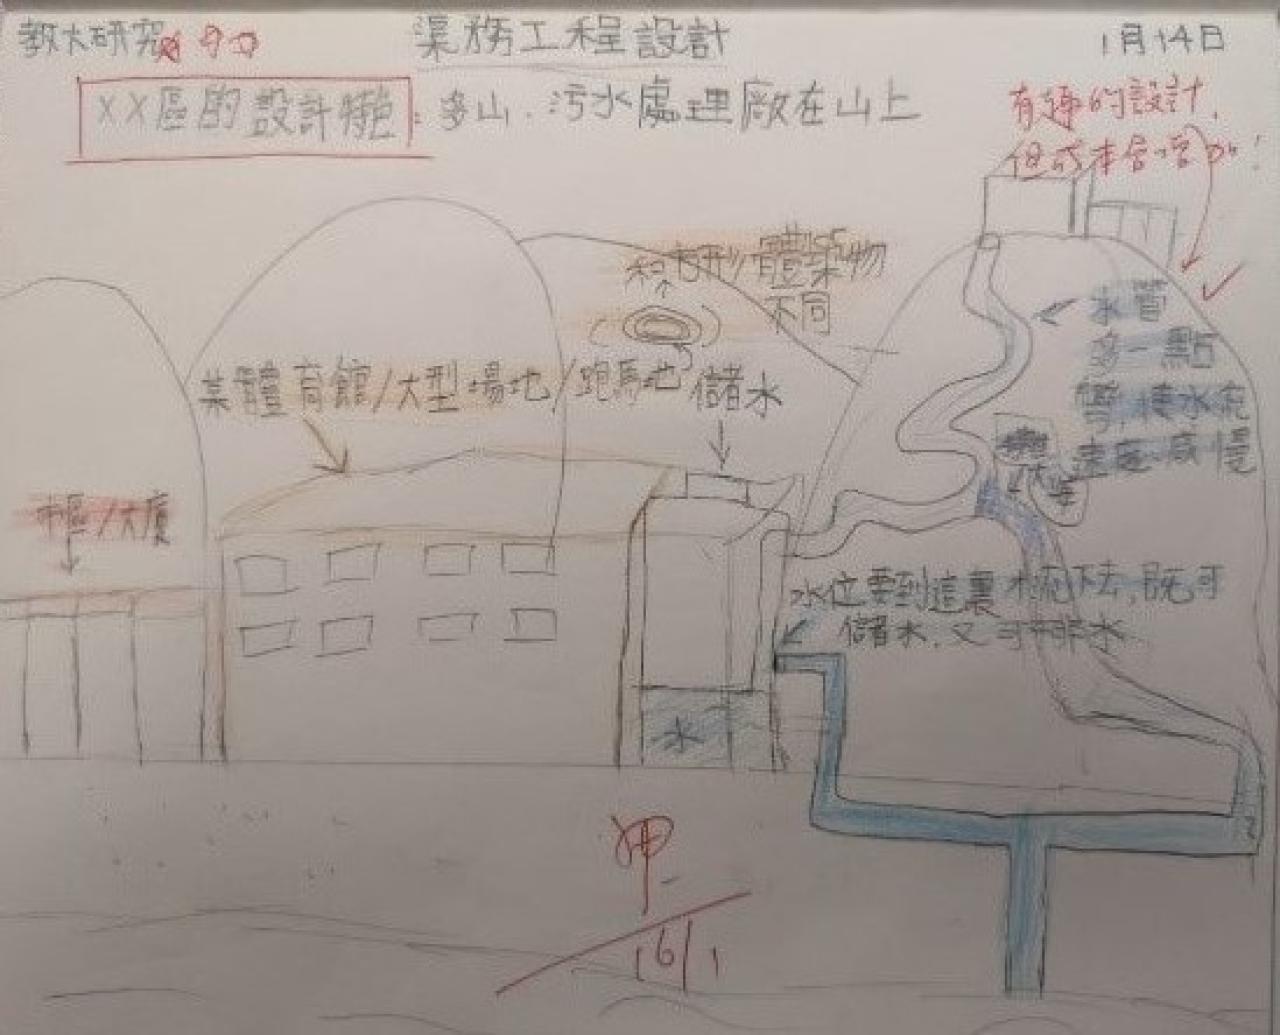 教大研究
渠務工程設計
1月14日
XX區的設計
：多山．污水處理廠在山上
有趣的設計，
但成本會增加！
體築物
不同
某體育館/大型場地/跑馬地
儲水
水管
多一點
彎，使水流
速度減慢
市區/大廈
水位要到這裏水流下去，既可
儲水，又可排水
水
甲
16/1